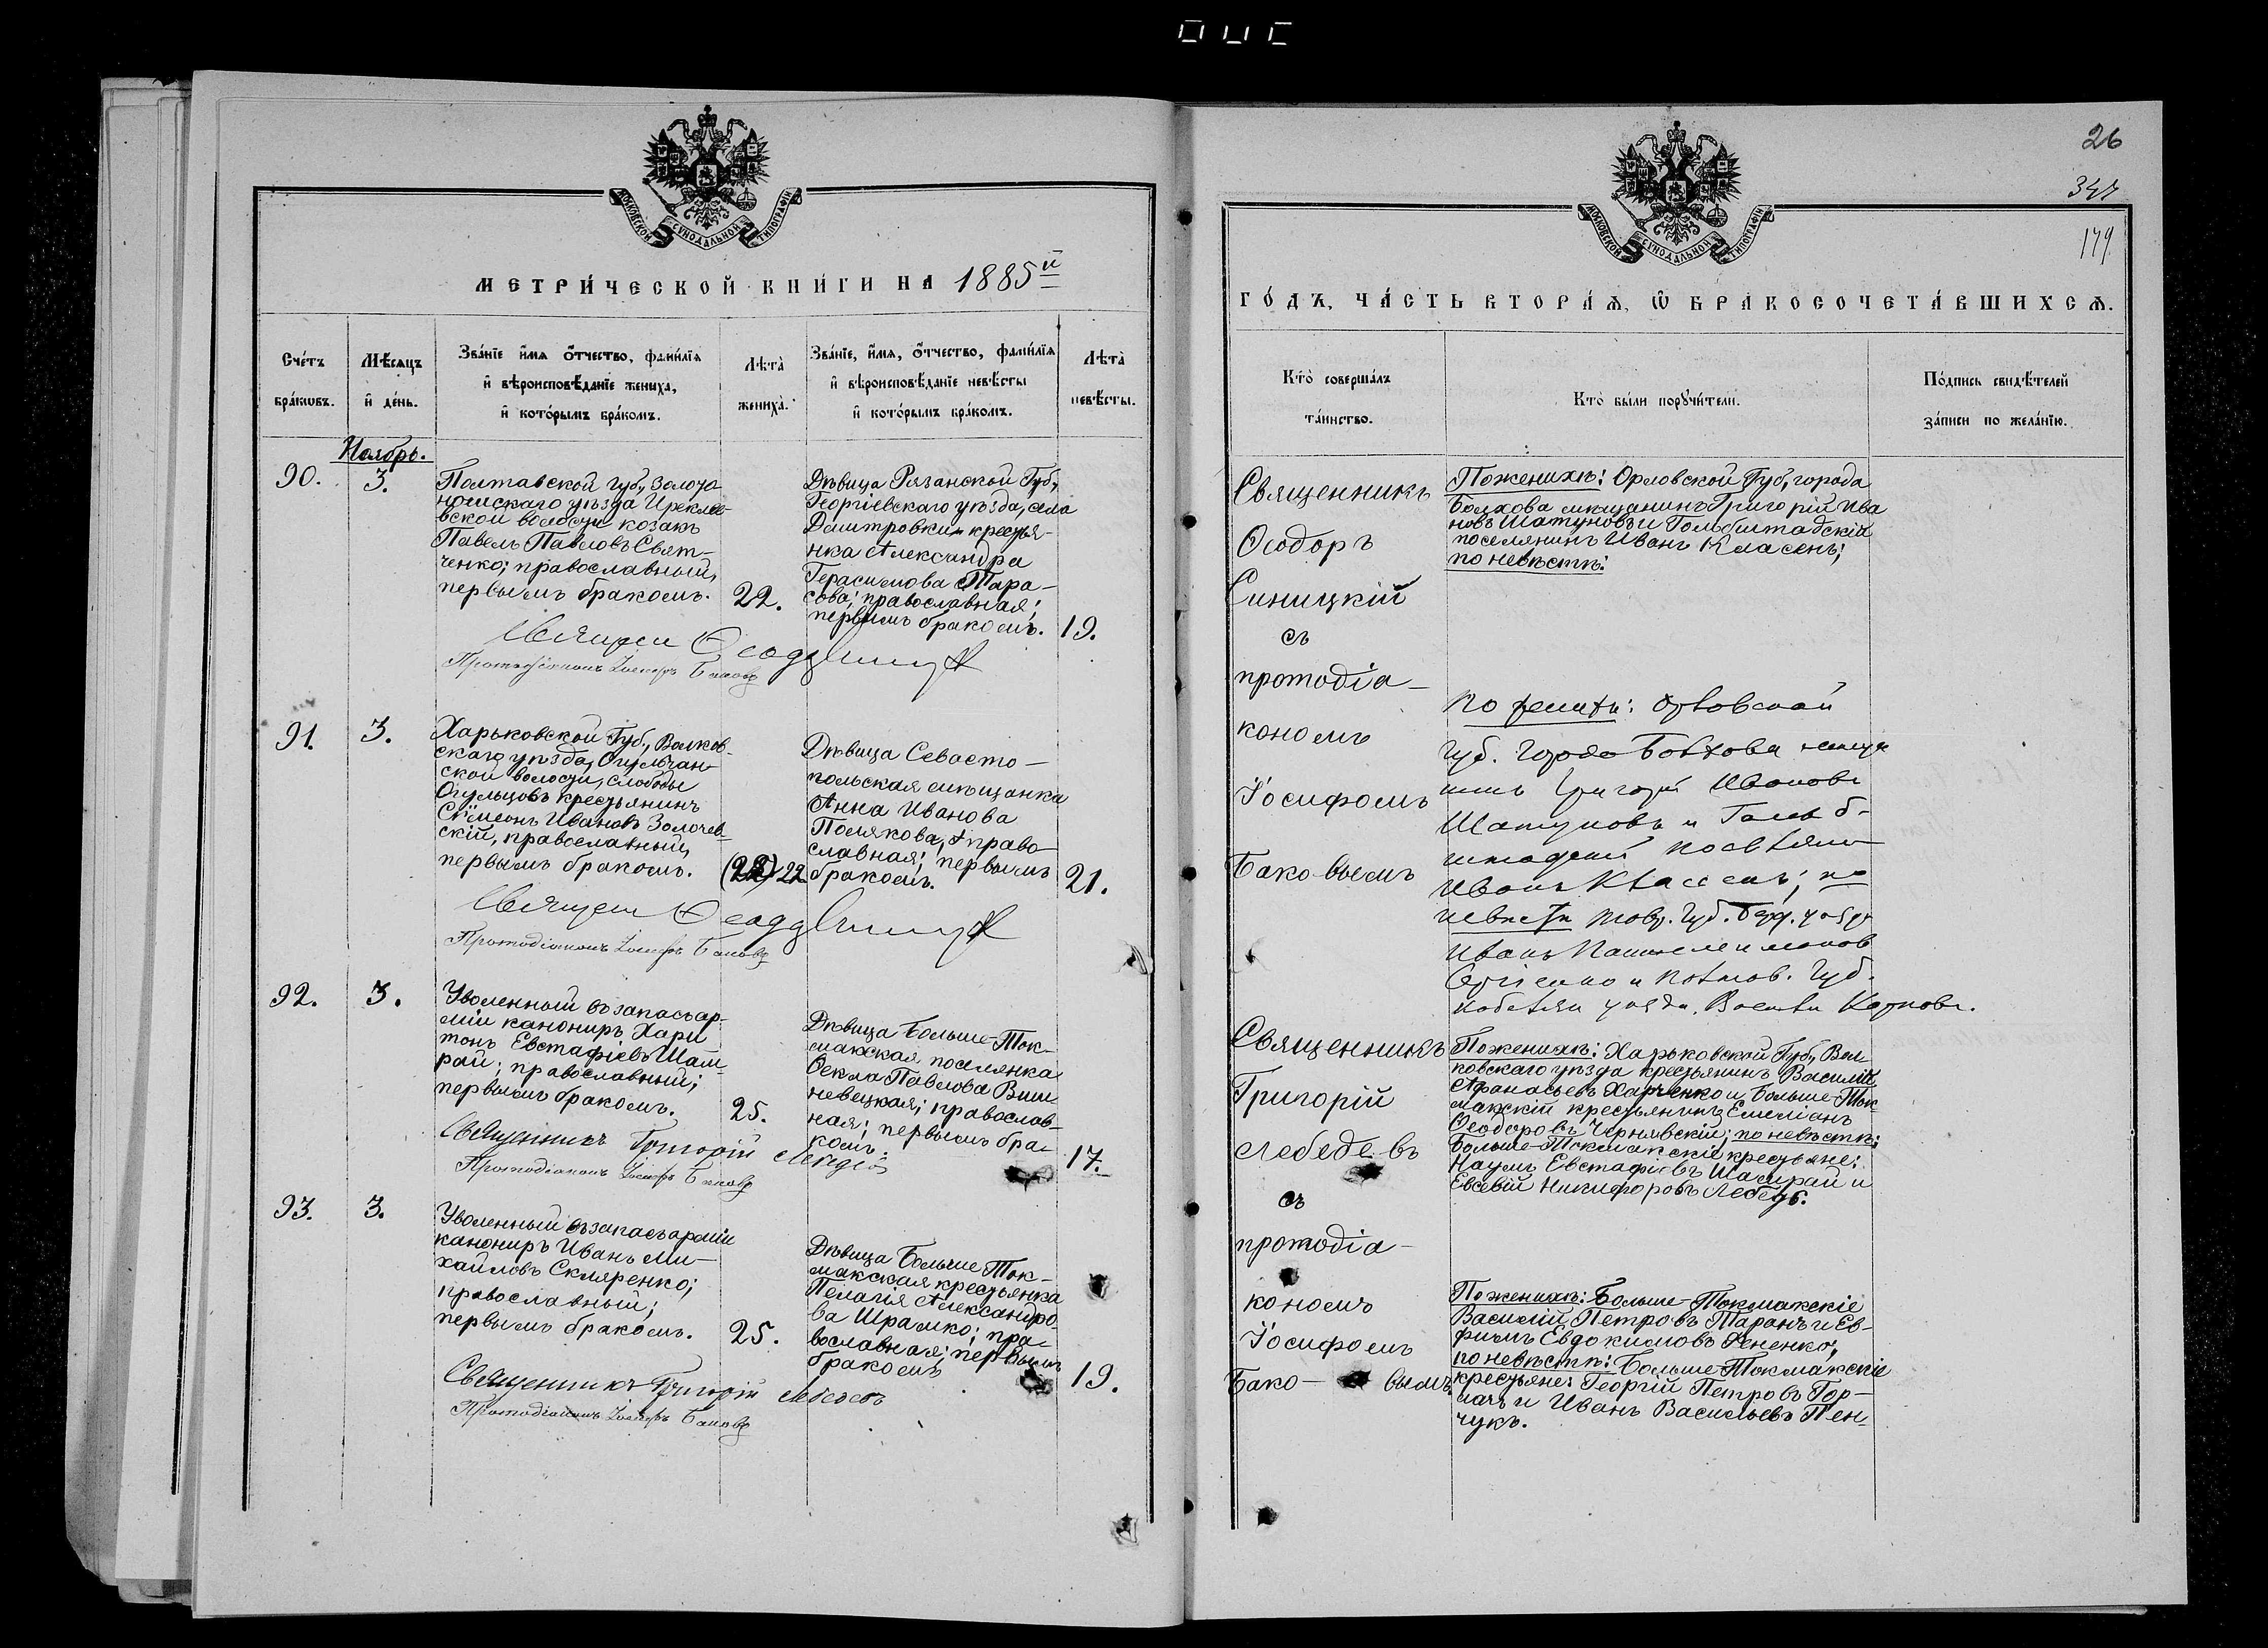 МОСКОВСКОЙ СѴНОДАЛЬНОЙ ТИПОГРАФІИ
МЕТРИ́ЧЕСКОЙ КНИ́ГИ НА 1885й
Сче́тъ бра́кѡвъ.
Мѣ́сяцъ и҆ де́нь.
Зва́нїе и҆́мя ѻ҆́тчество, фами́лїя
и҆ вѣроисповѣ́данїе жениха̀,
и҆ кото́рымъ бра́комъ.
Лѣта̀ жениха̀.
Зва́нїе, и҆́мя, ѻ҆́тчество, фами́лїя
и҆ вѣроисповѣ́данїе невѣ́сты
и҆ кото́рымъ бра́комъ.
Лѣта̀ невѣ́сты.
Ноябрь.
90.
3.
Полтавской Губ., Золото
ношскаго уѣзда Ирклѣе-
вской волости козакъ
Павелъ Павловъ Свят-
ченко; православный,
первымъ бракомъ.
22.
Дѣвица Рязанской Губ.,
Георгіевскаго уѣзда, села
Дмитровки крестья-
нка Александра
Герасимова Тара-
сова; православная;
первымъ бракомъ.
19.
Протодіаконъ Іосифъ Баковъ
91.
3.
Харьковской Губ., Валков-
скаго уѣзда, Огульчан-
ской волости, слободы
Огульцовъ крестьянинъ
Сѵмеонъ Ивановъ Золочев-
скій, православный,
первымъ бракомъ.
22
Дѣвица Севасто-
польская мѣщанка
Анна Иванова
Полякова, право-
славная; первымъ
бракомъ.
21.
Протодіаконъ Іосифъ Баковъ
92.
3.
Уволенный въ запасъ ар-
міи канониръ Хари
тонъ Евстафіевъ Шам-
рай; православный;
первымъ бракомъ.
25.
Дѣвица Больше-Ток-
макская поселянка
Ѳекла Павлова Виш-
невецкая; православ-
ная; первымъ бра-
комъ.
17.
Священникъ Григорій Лебедевъ
Протодіаконъ Іосифъ Баковъ
93.
3.
Уволенный въ запасъ арміи
канониръ Иванъ Ми-
хайловъ Скляренко;
православный;
первымъ бракомъ.
25.
Дѣвица Больше Ток-
макская крестьянка
Пелагія Александро-
ва Шрамко; пра-
вославная; первымъ
бракомъ
19.
Священникъ Григорій Лебедевъ
Протодіаконъ Іосифъ Баковъ
26
347
179
МОСКОВСКОЙ СѴНОДАЛЬНОЙ ТИПОГРАФІИ
ГО́ДЪ, ЧА́СТЬ ВТОРА́Ѧ, Ѡ҆ БРАКОСОЧЕТА́ВШИХСѦ.
Кто̀ соверша́лъ
та́инство.
Кто̀ бы́ли порꙋчи́тели.
По́дпись свидѣ́телей
за́писи по жела́нїю.
Священникъ
Ѳеодоръ
Синицкій
съ
протодіа-
кономъ
Іосифомъ
Баковымъ
По женихѣ: Орловской Губ., города
Болхова мѣщанинъ Григорій Ива
новъ Шатуновъ и Гольбштадскій
поселянинъ Иванъ Класенъ;
по невѣстѣ:
По женихѣ: Орловской
губ. города Болхова мѣща
нинъ Григорій Ивановъ
Шатуновъ и Гальб-
штадскій поселянинъ
Иванъ Классенъ; по
невѣстѣ Тавр. Губ. Берд. уѣзда
Иванъ Пантелеимонов
Сергіенко и Полтав. Губ.
Кобеляк. уѣзда. Василій Карповъ.
Священникъ
Григорій
Лебедевъ
съ
протодіа-
кономъ
Іосифомъ
Бако- вымъ
По женихѣ: Харьковской Губ., Вал-
ковскаго уѣзда крестьянинъ Василій
Афанасьевъ Харченко и Больше-Ток-
макскій крестьянинъ Емеліанъ
Ѳеодоровъ Чернявскій; по невѣстѣ:
Больше-Токмакскіе крестьяне:
Наумъ Евстафіевъ Шамрай и
Евсевій Никифоровъ Лебедь.
По женихѣ: Больше-Токмакскіе
Василій Петровъ Таранъ и Ев-
фимъ Евдокимовъ Рененко;
по невѣстѣ: Больше-Токмакскіе
крестьяне: Георгій Петровъ Гор-
лачъ и Иванъ Васильевъ Пен-
чукъ.